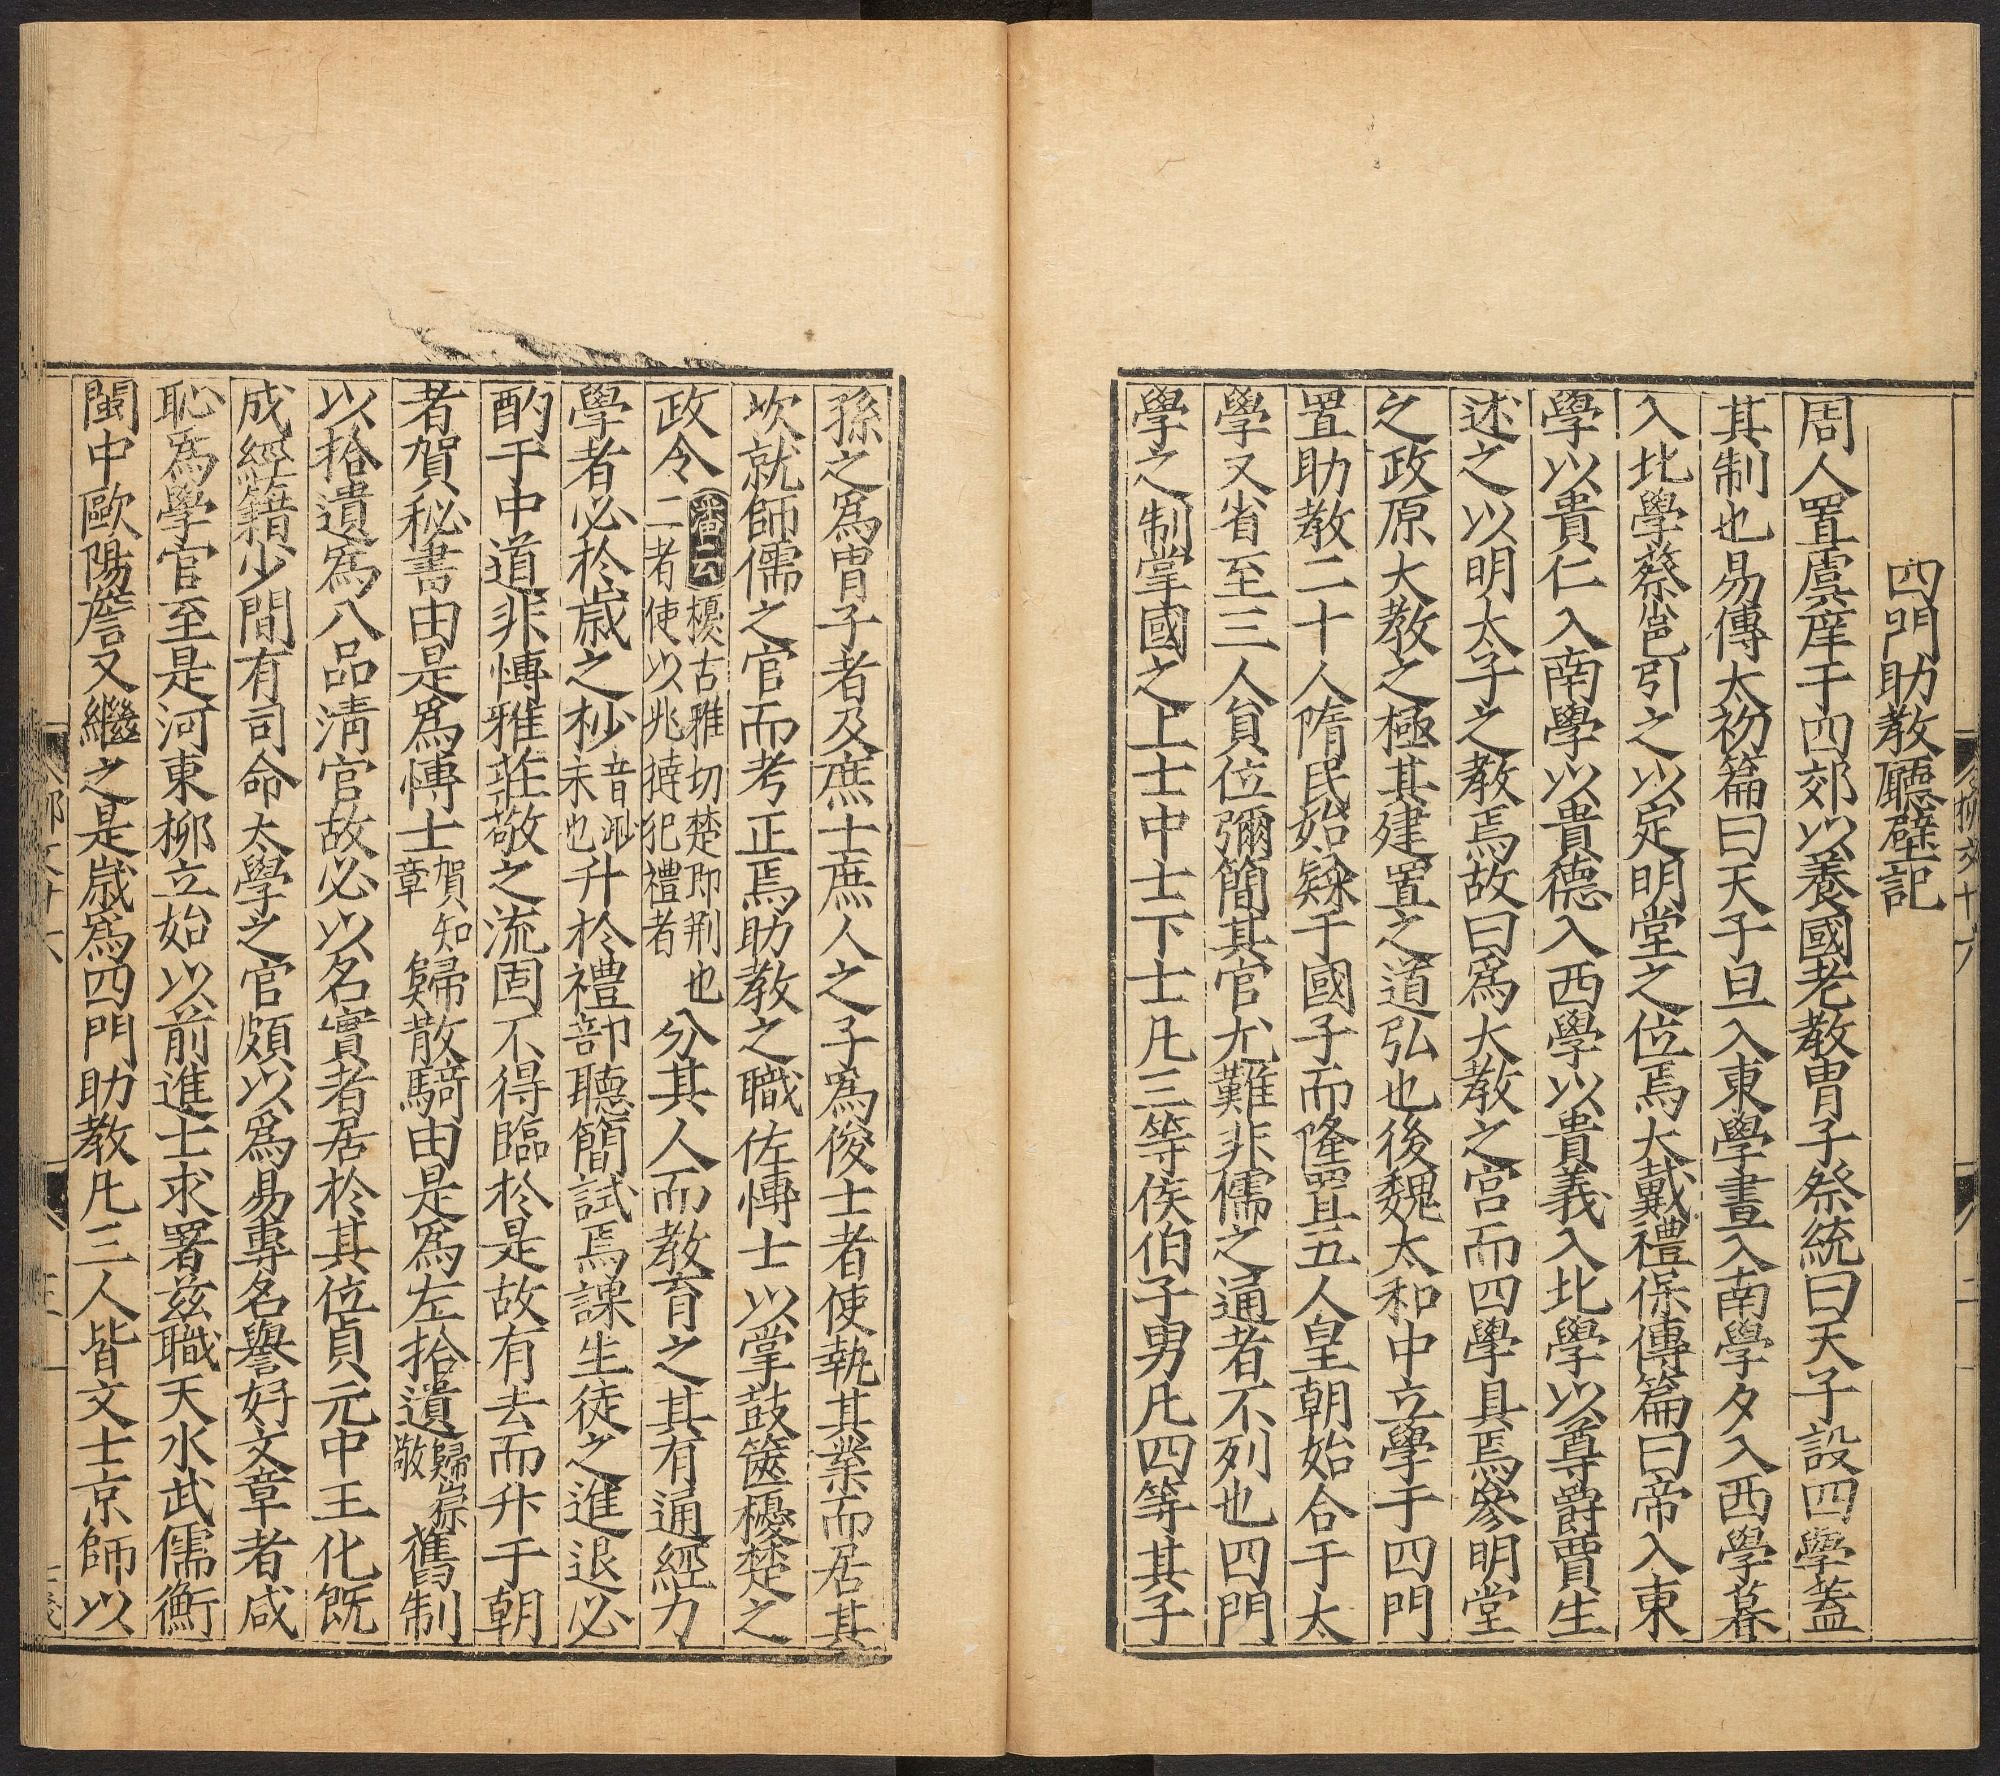 四門助教廳壁記
周人置虞庠于四郊以養國老教胄子祭統曰天子設四學蓋
其制也易傳太初篇曰天子旦入東學晝入南學夕入西學暮
入北學蔡邕引之以定明堂之位焉大戴禮保傅篇曰帝入東
學以貴仁入南學以貴德入西學以貴義入北學以尊爵賈生
述之以明太子之教焉故曰爲大教之宮而四學具焉參明堂
之政原大教之極其建置之道弘也後魏太和中立學于四門
置助教二十人隋氏始隸于國子而隆置五人皇朝始合于太
學又省至三人員位彌簡其官尤難非儒之通者不列也四門
學之制掌國之上士中士下士凡三等侯伯子男凡四等其子
孫之爲胄子者及庶士庶人之子爲俊士者使執其業而居其
次就師儒之官而考正焉助教之職佐博士以掌鼓篋榎楚之
政令番云榎古雅切楚即荆也二者使以兆撻犯禮者分其人而教育之其有通經力
學者必於歲之杪音渺末也升於禮部聽簡試焉課生徒之進退必
酌于中道非博雅莊敬之流固不得臨於是故有去而升于朝
者賀秘書由是爲博士賀知章歸散騎由是爲左拾遺歸崇敬舊制
以拾遺爲八品清官故必以名實者居於其位貞元中王化既
成經籍少間有司命太學之官頗以爲易專名譽好文章者咸
恥爲學官至是河東柳立始以前進士求署兹職天水武儒衡
閩中歐陽詹又繼之是歲爲四門助教凡三人皆文士京師以